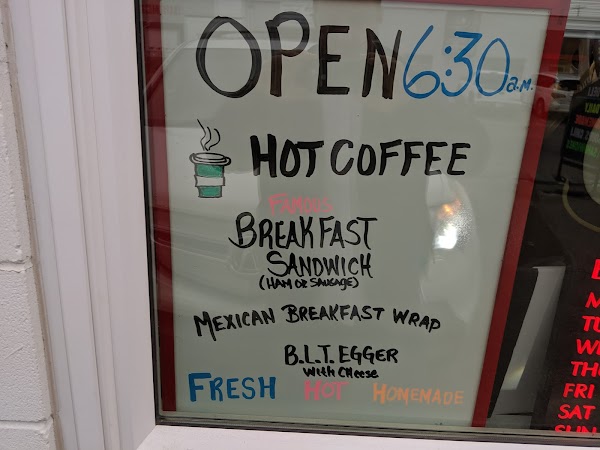 OPEN 6:30 a.m.
HOT COFFEE
FAMOUS
BREAKFAST
SANDWICH
(HAM OR SAUSAGE)
MEXICAN BREAKFAST WRAP
B.L.T. EGGER
WITH CHEESE
FRESH HOT HOMEMADE
FRI
SAT
SUN